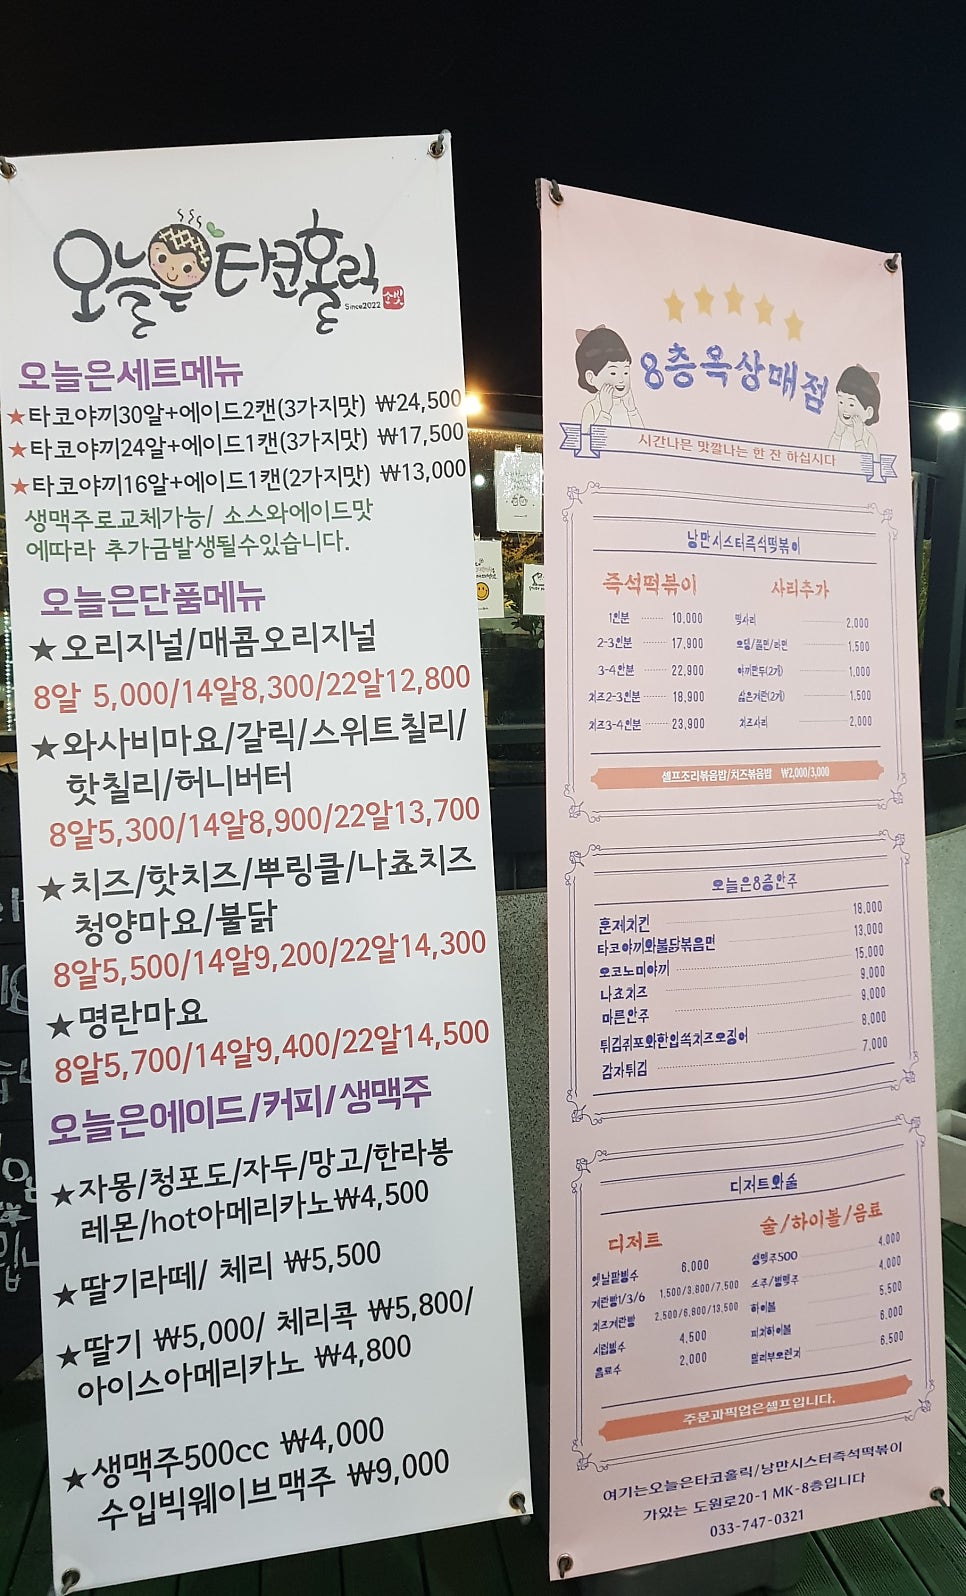 오늘은타코홀릭
Since2022
오늘은세트메뉴
★타코야끼30알+에이드2캔(3가지맛) ₩24,500
★타코야끼24알+에이드1캔(3가지맛) ₩17,500
★타코야끼16알+에이드1캔(2가지맛) ₩13,000
생맥주로교체가능/ 소스와에이드맛
에따라 추가금발생될수있습니다.
오늘은단품메뉴
★오리지널/매콤오리지널
8알 5,000/14알8,300/22알12,800
★와사비마요/갈릭/스위트칠리/
핫칠리/허니버터
8알5,300/14알8,900/22알13,700
★치즈/핫치즈/뿌링클/나쵸치즈
청양마요/불닭
8알5,500/14알9,200/22알14,300
★명란마요
8알5,700/14알9,400/22알14,500
오늘은에이드/커피/생맥주
★자몽/청포도/자두/망고/한라봉
레몬/hot아메리카노₩4,500
★딸기라떼/ 체리 ₩5,500
★딸기 ₩5,000/ 체리콕 ₩5,800/
아이스아메리카노 ₩4,800
★생맥주500cc ₩4,000
수입빅웨이브맥주 ₩9,000
8층옥상매점
시간나믄 맛깔나는 한 잔 하십시다
낭만시스터즉석떡볶이
즉석떡볶이
1인분 10,000
2-3인분 17,900
3-4인분 22,900
치즈2-3인분 18,900
치즈3-4인분 23,900
사리추가
떡사리 2,000
오뎅/쫄면/라면 1,500
야끼만두(2개) 1,000
삶은계란(2개) 1,500
치즈사리 2,000
셀프조리볶음밥/치즈볶음밥 ₩2,000/3,000
오늘은8층안주
훈제치킨 18,000
타코야끼와불닭볶음면 13,000
오코노미야끼 15,000
나쵸치즈 9,000
마른안주 9,000
튀김쥐포와한입쏙치즈오징어 8,000
감자튀김 7,000
디저트와술
디저트
옛날팥빙수 6,000
계란빵1/3/6 1,500/3,800/7,500
치즈계란빵 2,500/6,800/13,500
시럽빙수 4,500
음료수 2,000
술/하이볼/음료
생맥주500 4,000
소주/병맥주 4,000
하이볼 5,500
피치하이볼 6,000
말리부오렌지 6,500
주문과픽업은셀프입니다.
여기는오늘은타코홀릭/낭만시스터즉석떡볶이
가있는 도원로20-1 MK-8층입니다
033-747-0321